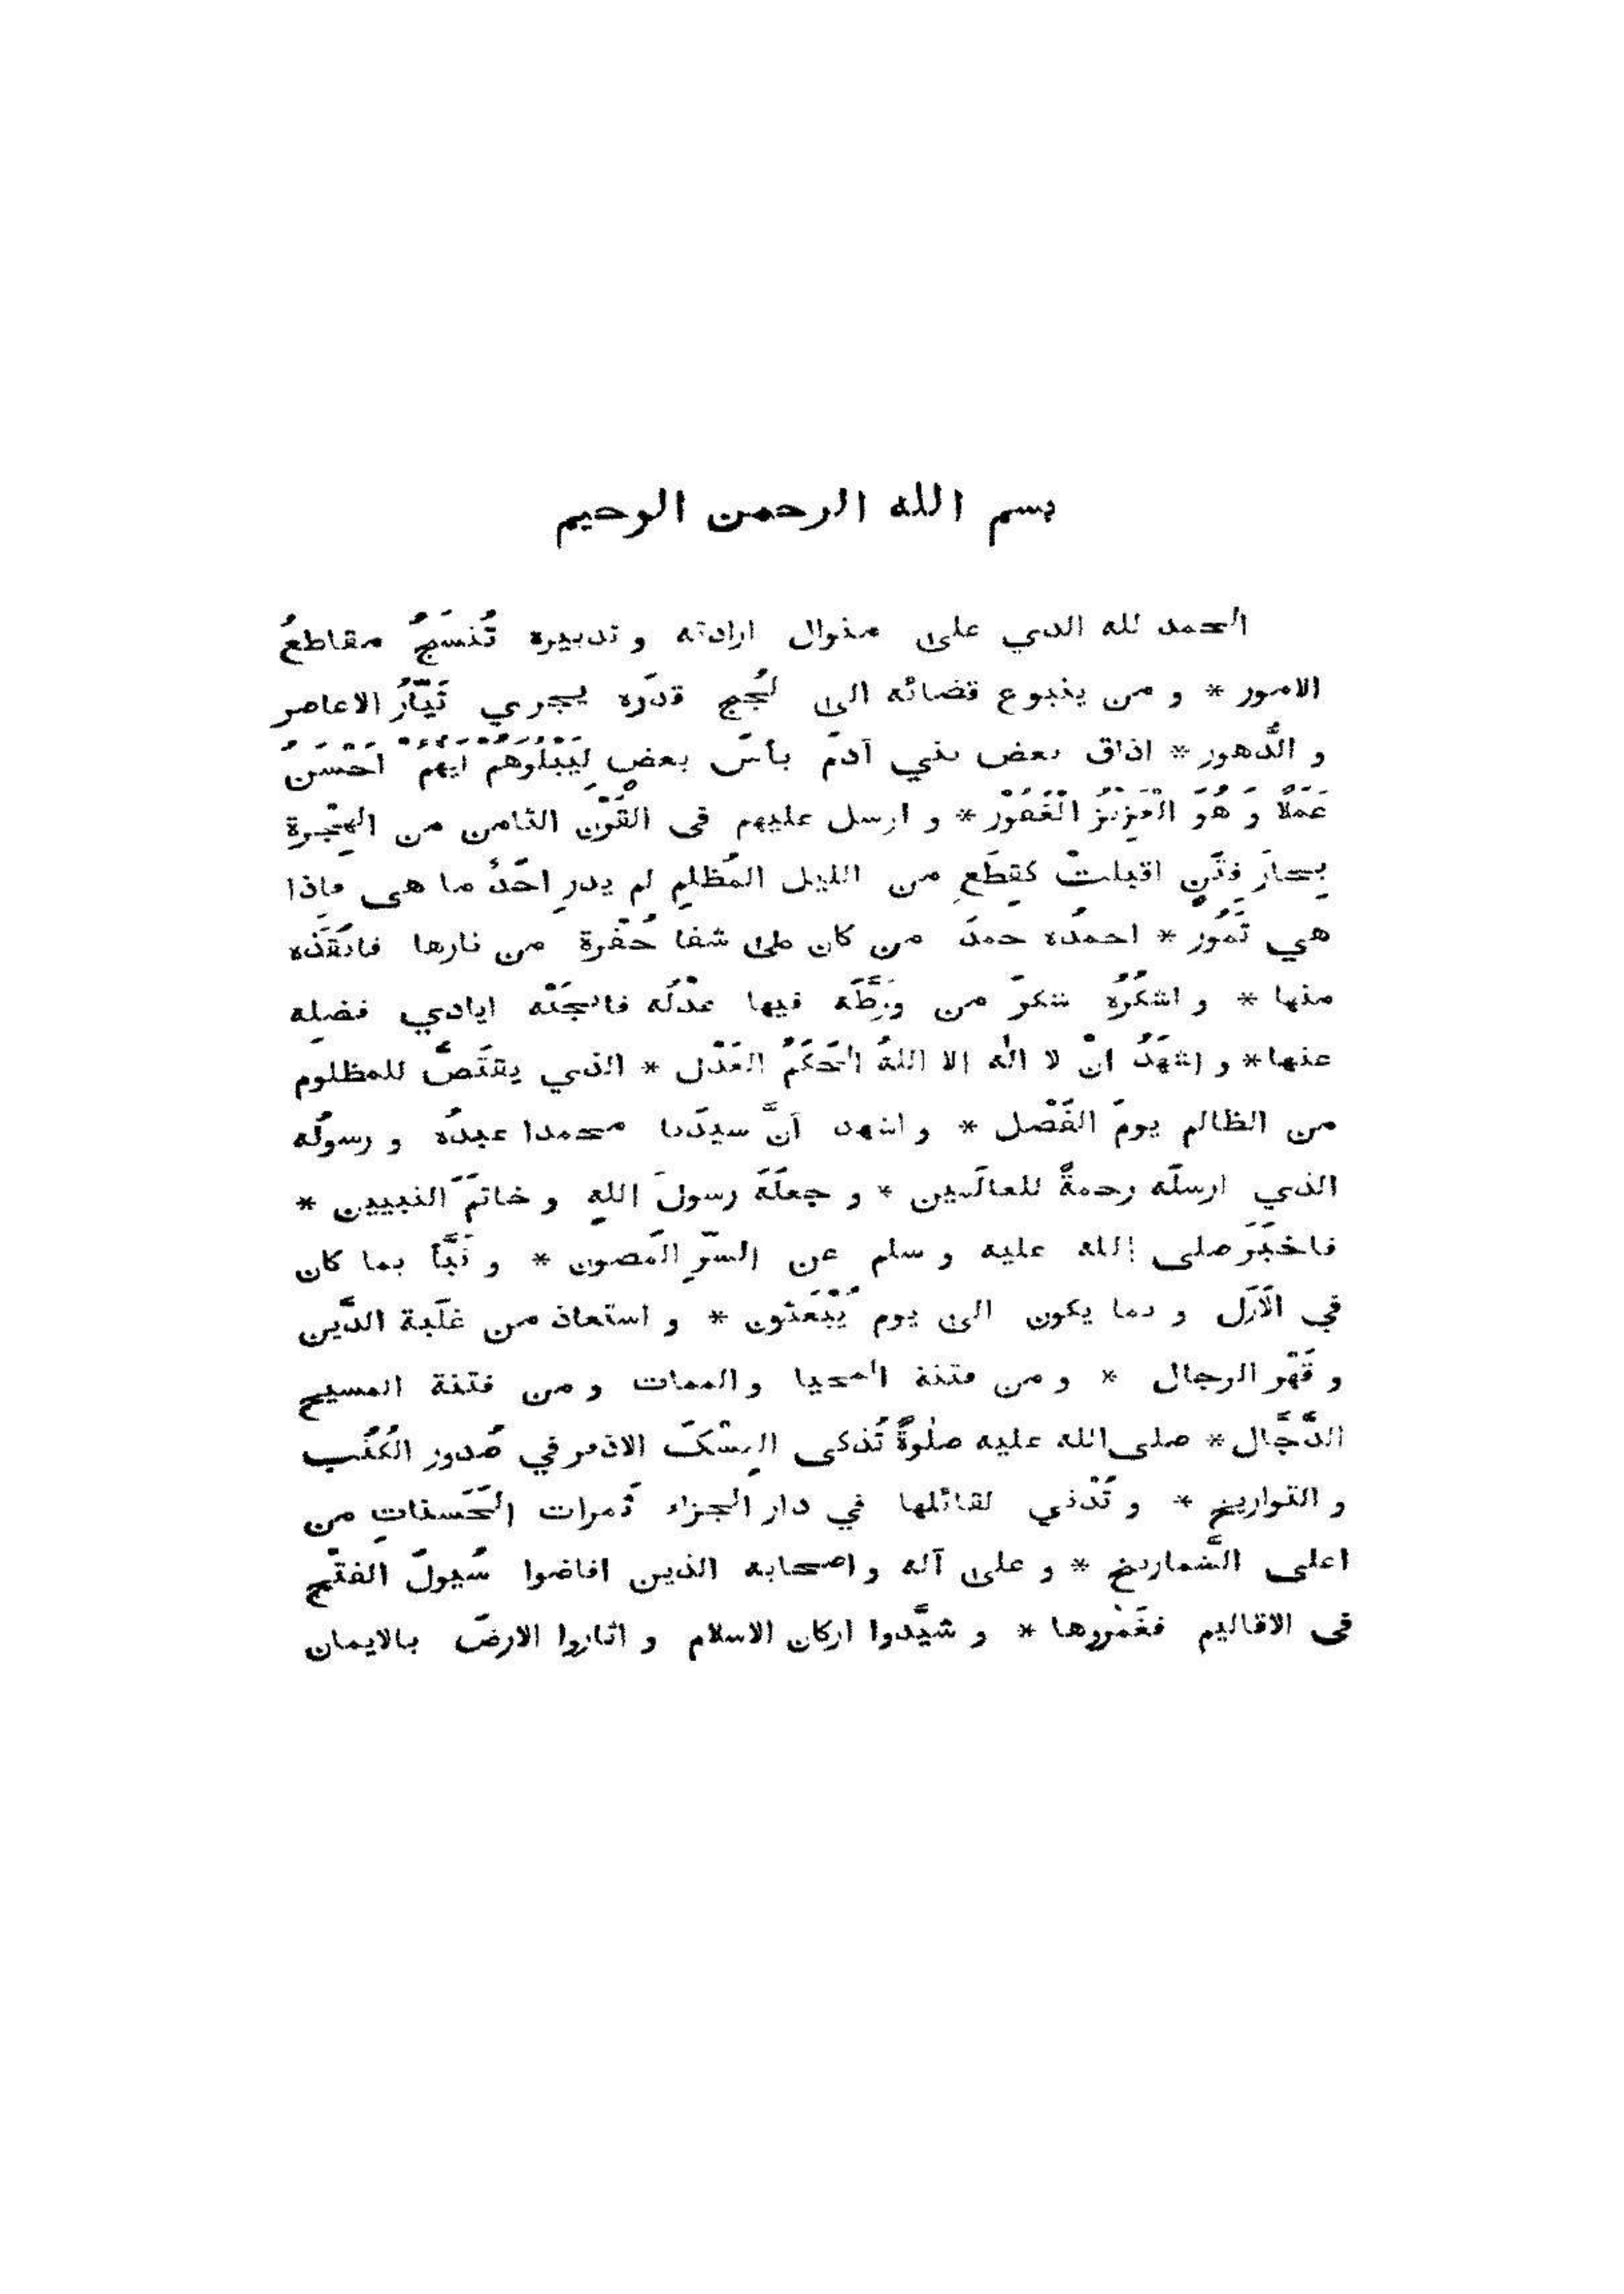 بسم الله الرحمن الرحيم
الحمد لله الذي على منوال ارادته و تدبيره تُنسَجُ مقاطعُ
الامور * و من ينبوع قضائه الى لُجج قدَره يجري تَيّارُ الاعاصر
و الدَّهور * اذاق بعض بني آدمَ بأسَ بعضٍ لِيَبْلُوَهُمْ اَيُّهُمْ اَحْسَنُ
عَمَلًا وَ هُوَ الْعَزِيْزُ الْغَفُوْر * و ارسل عليهم فى القَوْن الثامن من الهِجْرة
بِحارَ فِتَنٍ اقبلتْ كقِطَعٍ من الليل المُظلِم لم يدرِ احَدٌ ما هى فاِذا
هي تَمُوْرُ * احمدُه حمدَ من كان على شفا حُفْرة من نارها فانْقَذَه
منها * و اشكُرُه شكرَ من وَرَّطَه فيها عدْلُه فانْجَتْه ايادي فضلِه
عنها * و اشهَدُ انْ لا اله الا اللهُ الحَكَمُ العَدْل * الذي يقتَصُّ للمظلوم
من الظالم يومَ الفَصْل * و اشهد اَنَّ سيدَنا محمدا عبدُه و رسولُه
الذي ارسلَه رحمةً للعالَمين * و جعلَهَ رسولَ اللهِ و خاتمَ النبيين *
فاخبَرَ صلى الله عليه و سلم عن السرِّ المَصون * و نَبَّأ بما كان
في الاَزَل و بما يكون الى يوم يُبْعَثون * و استعاذ من غلَبة الدَّين
و قَهْر الرجال * و من فتنة المحيا و الممات و من فتنة المسيح
الدَّجَّال * صلى الله عليه صلٰوةً تُذكى المِسْكَ الاذفر في صُدور الكُتُب
و التواريخ * و تُدْني لقائلها في دار الجزاء ثَمرات الحَسَناتِ من
اعلى الشَّماريخ * و على آله و اصحابه الذين افاضوا سُيولَ الفتْح
فى الاقاليم فغَمَروها * و شيَّدوا اركان الاسلام و اثاروا الارضَ بالايمان